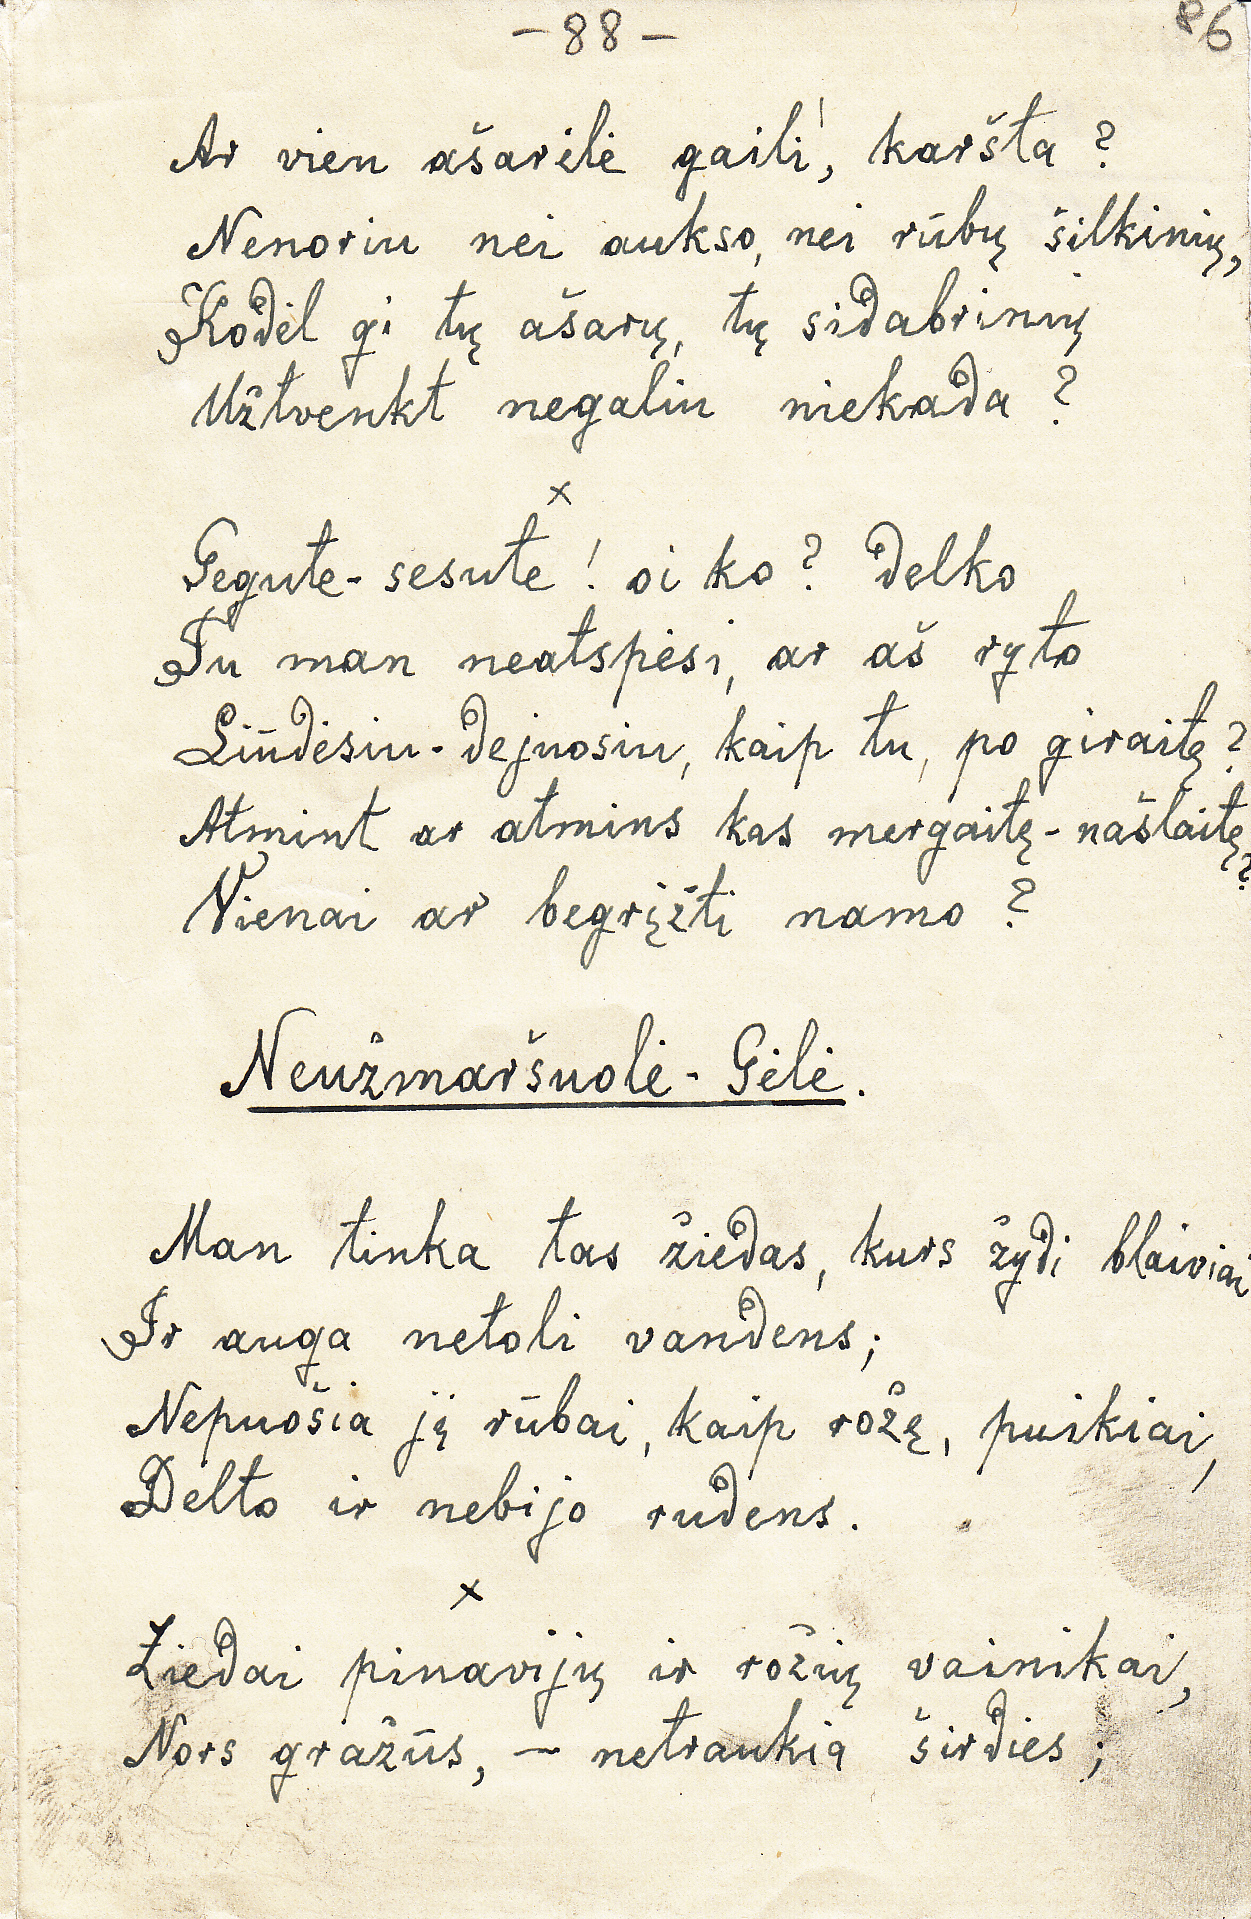 - 88 -
86
Ar vien ašarėlė gaili, karšta ?
Nenoriu nei aukso, nei rūbų šilkinių,
Kodėl gi tų ašarų, tų sidabrinių
Užtvenkt negaliu niekada ?
x
Gegute-sesute ! oi ko ? delko
Tu man neatspėsi, ar aš ryto
Liūdėsiu-dejuosiu, kaip tu, po giraitę ?
Atmint ar atmins kas mergaitę-našlaitę,
Vienai ar begrįžti namo ?
Neužmaršuolė - Gėlė.
Man tinka tas žiedas, kurs žydi blaiviai
Ir auga netoli vandens;
Nepuošia jį rūbai, kaip rožę, puikiai,
Delto ir nebijo rudens.
x
Žiedai pinavijų ir rožių vainikai,
Nors gražūs, – netraukia širdies ;